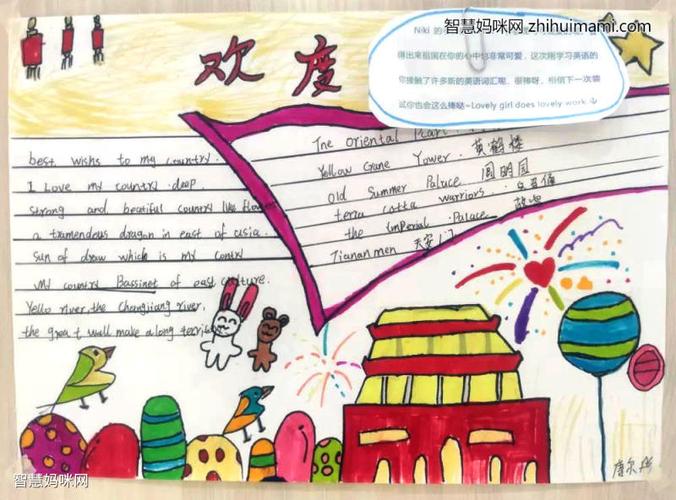 智慧妈咪网 zhihuimami.com
Niki 的
得出来祖国在你的心中也非常可爱，这次刚学习英语的
你接触了许多新的英语词汇呢，很棒呀，相信下一次尝
试你也会这么棒哒~Lovely girl does lovely work
欢度
best wishs to my country.
I Love my country deep.
strong and beatiful country like flower
a tramendous dragon in east of asia.
sun of draw which is my contry
My country Bassinet of east culture.
Yello river, the Changjiang river,
the great wall make a long territory
The Oriental Pearl
Yellow Crane Tower. 黄鹤楼
Old Summer Palace 圆明园
terra cotta warriors 兵马俑
the Imperial Palace 故宫
Tiananmen 天安门
智慧妈咪网